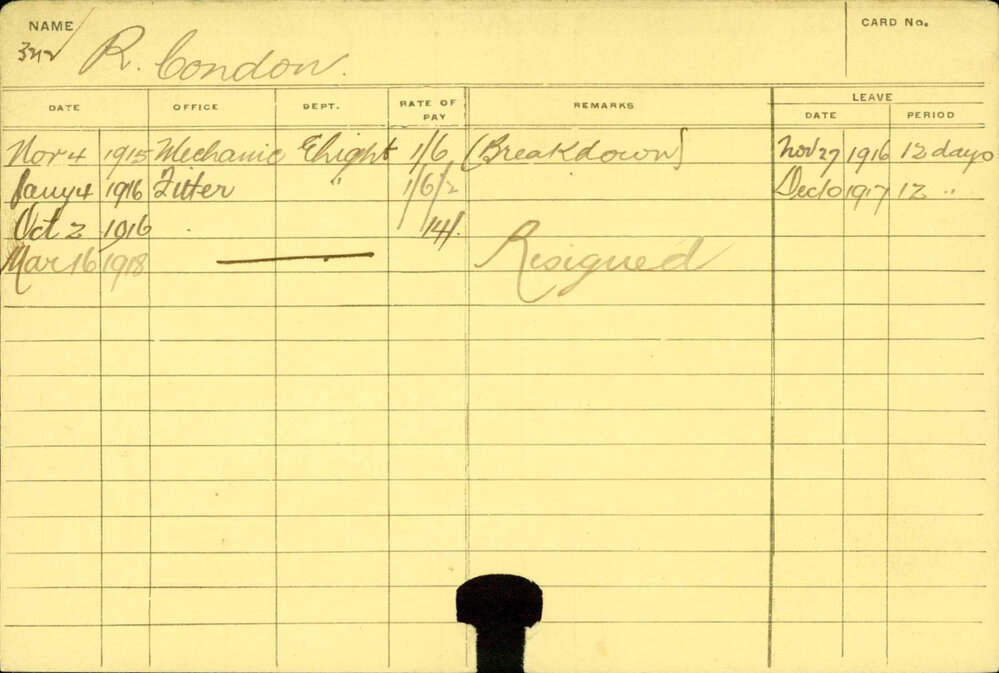 NAME
CARD No.
R. Condon.
DATE OFFICE DEPT. RATE OF PAY REMARKS LEAVE
DATE PERIOD
Nov 4 1915 Mechanic Elight 1/6 (Breakdown) Nov 27 1916 12 days
Jany 4 1916 Fitter " 1/6/2 Dec 10 1917 12 "
Oct 2 1916 14/.
Mar 16 1918 Resigned